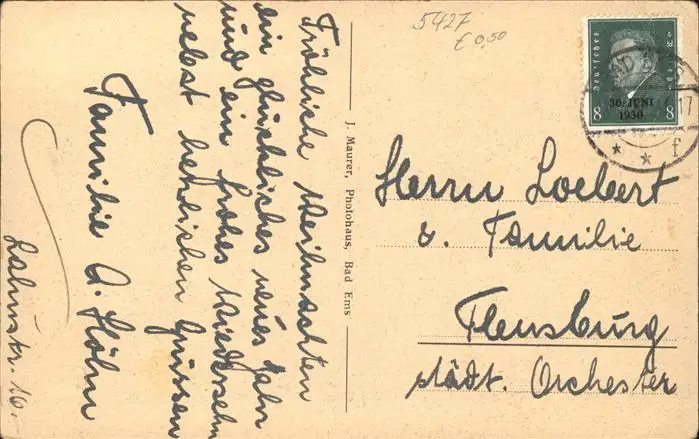 5427
£ 0,50
Fröhliche Weihnachten
ein glückliches neues Jahr
und ein frohes Wiedersehn
nebst herzlichen Grüssen
Familie A. Höhn
Lahnstr. 16.
J. Maurer, Photohaus, Bad Ems
Deutsches Reich
30. JUNI
1930
8 8
BAD EMS
17
f
Herrn Loebert
u. Familie
Flensburg
städt. Orchester